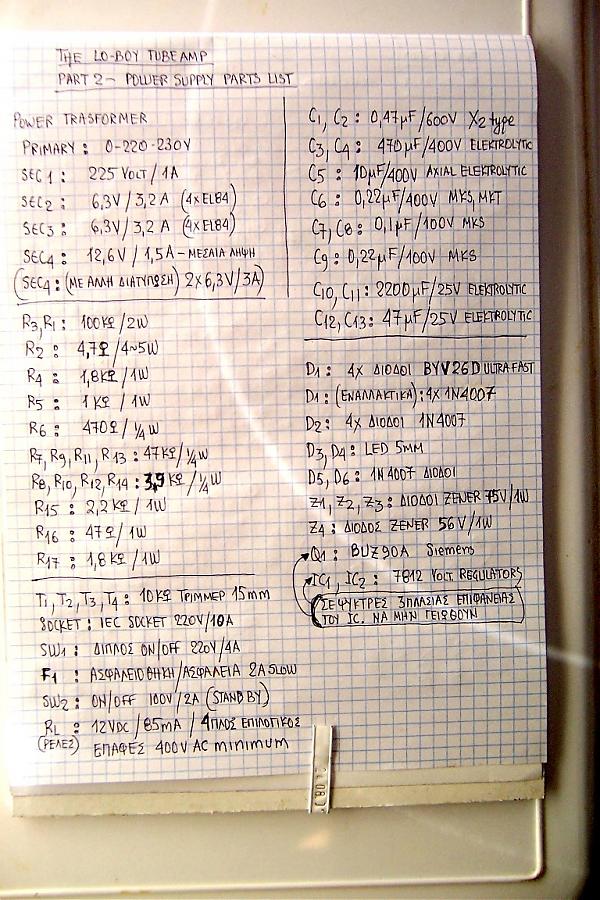 THE LO-BOY TUBEAMP
PART 2 - POWER SUPPLY PARTS LIST
POWER TRASFORMER
PRIMARY : 0-220-230V
SEC 1 : 225 VOLT / 1A
SEC2 : 6,3V / 3,2 A (4xEL84)
SEC3 : 6,3V / 3,2 A (4xEL84)
SEC4 : 12,6V / 1,5A - ΜΕΣΑΙΑ ΛΗΨΗ
(SEC4 : (ΜΕ ΑΛΛΗ ΔΙΑΤΥΠΩΣΗ) 2x6,3V/3A)
R3, R1 : 100KΩ / 2W
R2 : 4,7Ω / 4~5W
R4 : 1,8KΩ / 1W
R5 : 1 KΩ / 1W
R6 : 470Ω / 1/4 W
R7, R9, R11, R13 : 47KΩ / 1/4 W
R8, R10, R12, R14 : 3,9 KΩ / 1/4 W
R15 : 2,2 KΩ / 1W
R16 : 47Ω / 1W
R17 : 1,8KΩ / 1W
T1, T2, T3, T4 : 10KΩ ΤΡΙΜΜΕΡ 15mm
SOCKET : IEC SOCKET 220V/10A
SW1 : ΔΙΠΛΟΣ ON/OFF 220V/4A
F1 : ΑΣΦΑΛΕΙΟΘΗΚΗ/ΑΣΦΑΛΕΙΑ 2A SLOW
SW2 : ON/OFF 100V/2A (STAND BY)
RL : 12VDC / 85mA / 4ΠΛΟΣ ΕΠΙΛΟΓΙΚΟΣ
(ΡΕΛΕΣ) ΕΠΑΦΕΣ 400V AC minimum
C1, C2 : 0,47μF/600V X2 type
C3, C4 : 470μF/400V ELEKTROLYTIC
C5 : 10μF/400V AXIAL ELEKTROLYTIC
C6 : 0,22μF/400V MKS, MKT
C7, C8 : 0,1μF/100V MKS
C9 : 0,22μF/100V MKS
C10, C11 : 2200μF/25V ELEKTROLYTIC
C12, C13 : 47μF/25V ELEKTROLYTIC
D1 : 4X ΔΙΟΔΟΙ BYV26D ULTRA FAST
D1 : (ΕΝΑΛΛΑΚΤΙΚΑ) : 4X 1N4007
D2 : 4X ΔΙΟΔΟΙ 1N4007
D3, D4 : LED 5MM
D5, D6 : 1N4007 ΔΙΟΔΟΙ
Z1, Z2, Z3 : ΔΙΟΔΟΙ ZENER 75V/1W
Z4 : ΔΙΟΔΟΣ ZENER 56V/1W
Q1 : BUZ90A Siemens
IC1, IC2 : 7812 VOLT. REGULATORS
ΣΕ ΨΥΚΤΡΕΣ 3ΠΛΑΣΙΑΣ ΕΠΙΦΑΝΕΙΑΣ
ΤΟΥ IC. ΝΑ ΜΗΝ ΓΕΙΩΘΟΥΝ